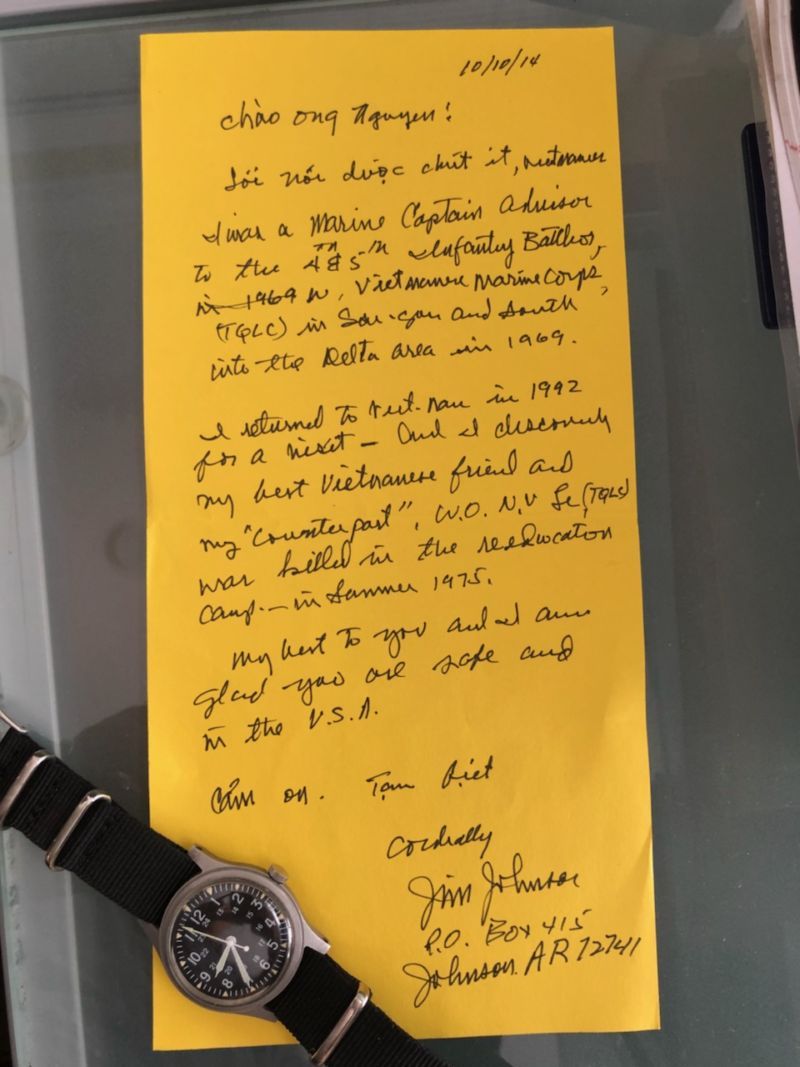 10/10/14
Chào ong Nguyen!
Tôi nói được chút ít, Vietnamese
I was a Marine Captain Advisor
to the 4th & 5th Infantry Battlions,
in 1969 in, Vietnamese Marine Corps,
(TQLC) in Sai-gon and south
into the Delta area in 1969.
I returned to Viet-nam in 1992
for a visit - and I discovered
my best Vietnamese friend and
my "Counterpart", W.O. N.V Le (TQLC)
was killed in the reeducation
camp - in Summer 1975.
My best to you and I am
glad you are safe and
in the U.S.A.
Cảm on. Tạm biệt
Cordially
Jim Johnson
P.O. Box 415
Johnson, AR 72741
12 1 2 3 4 5 6 7 8 9 10 11
24 13 14 15 16 17 18 19 20 21 22 23